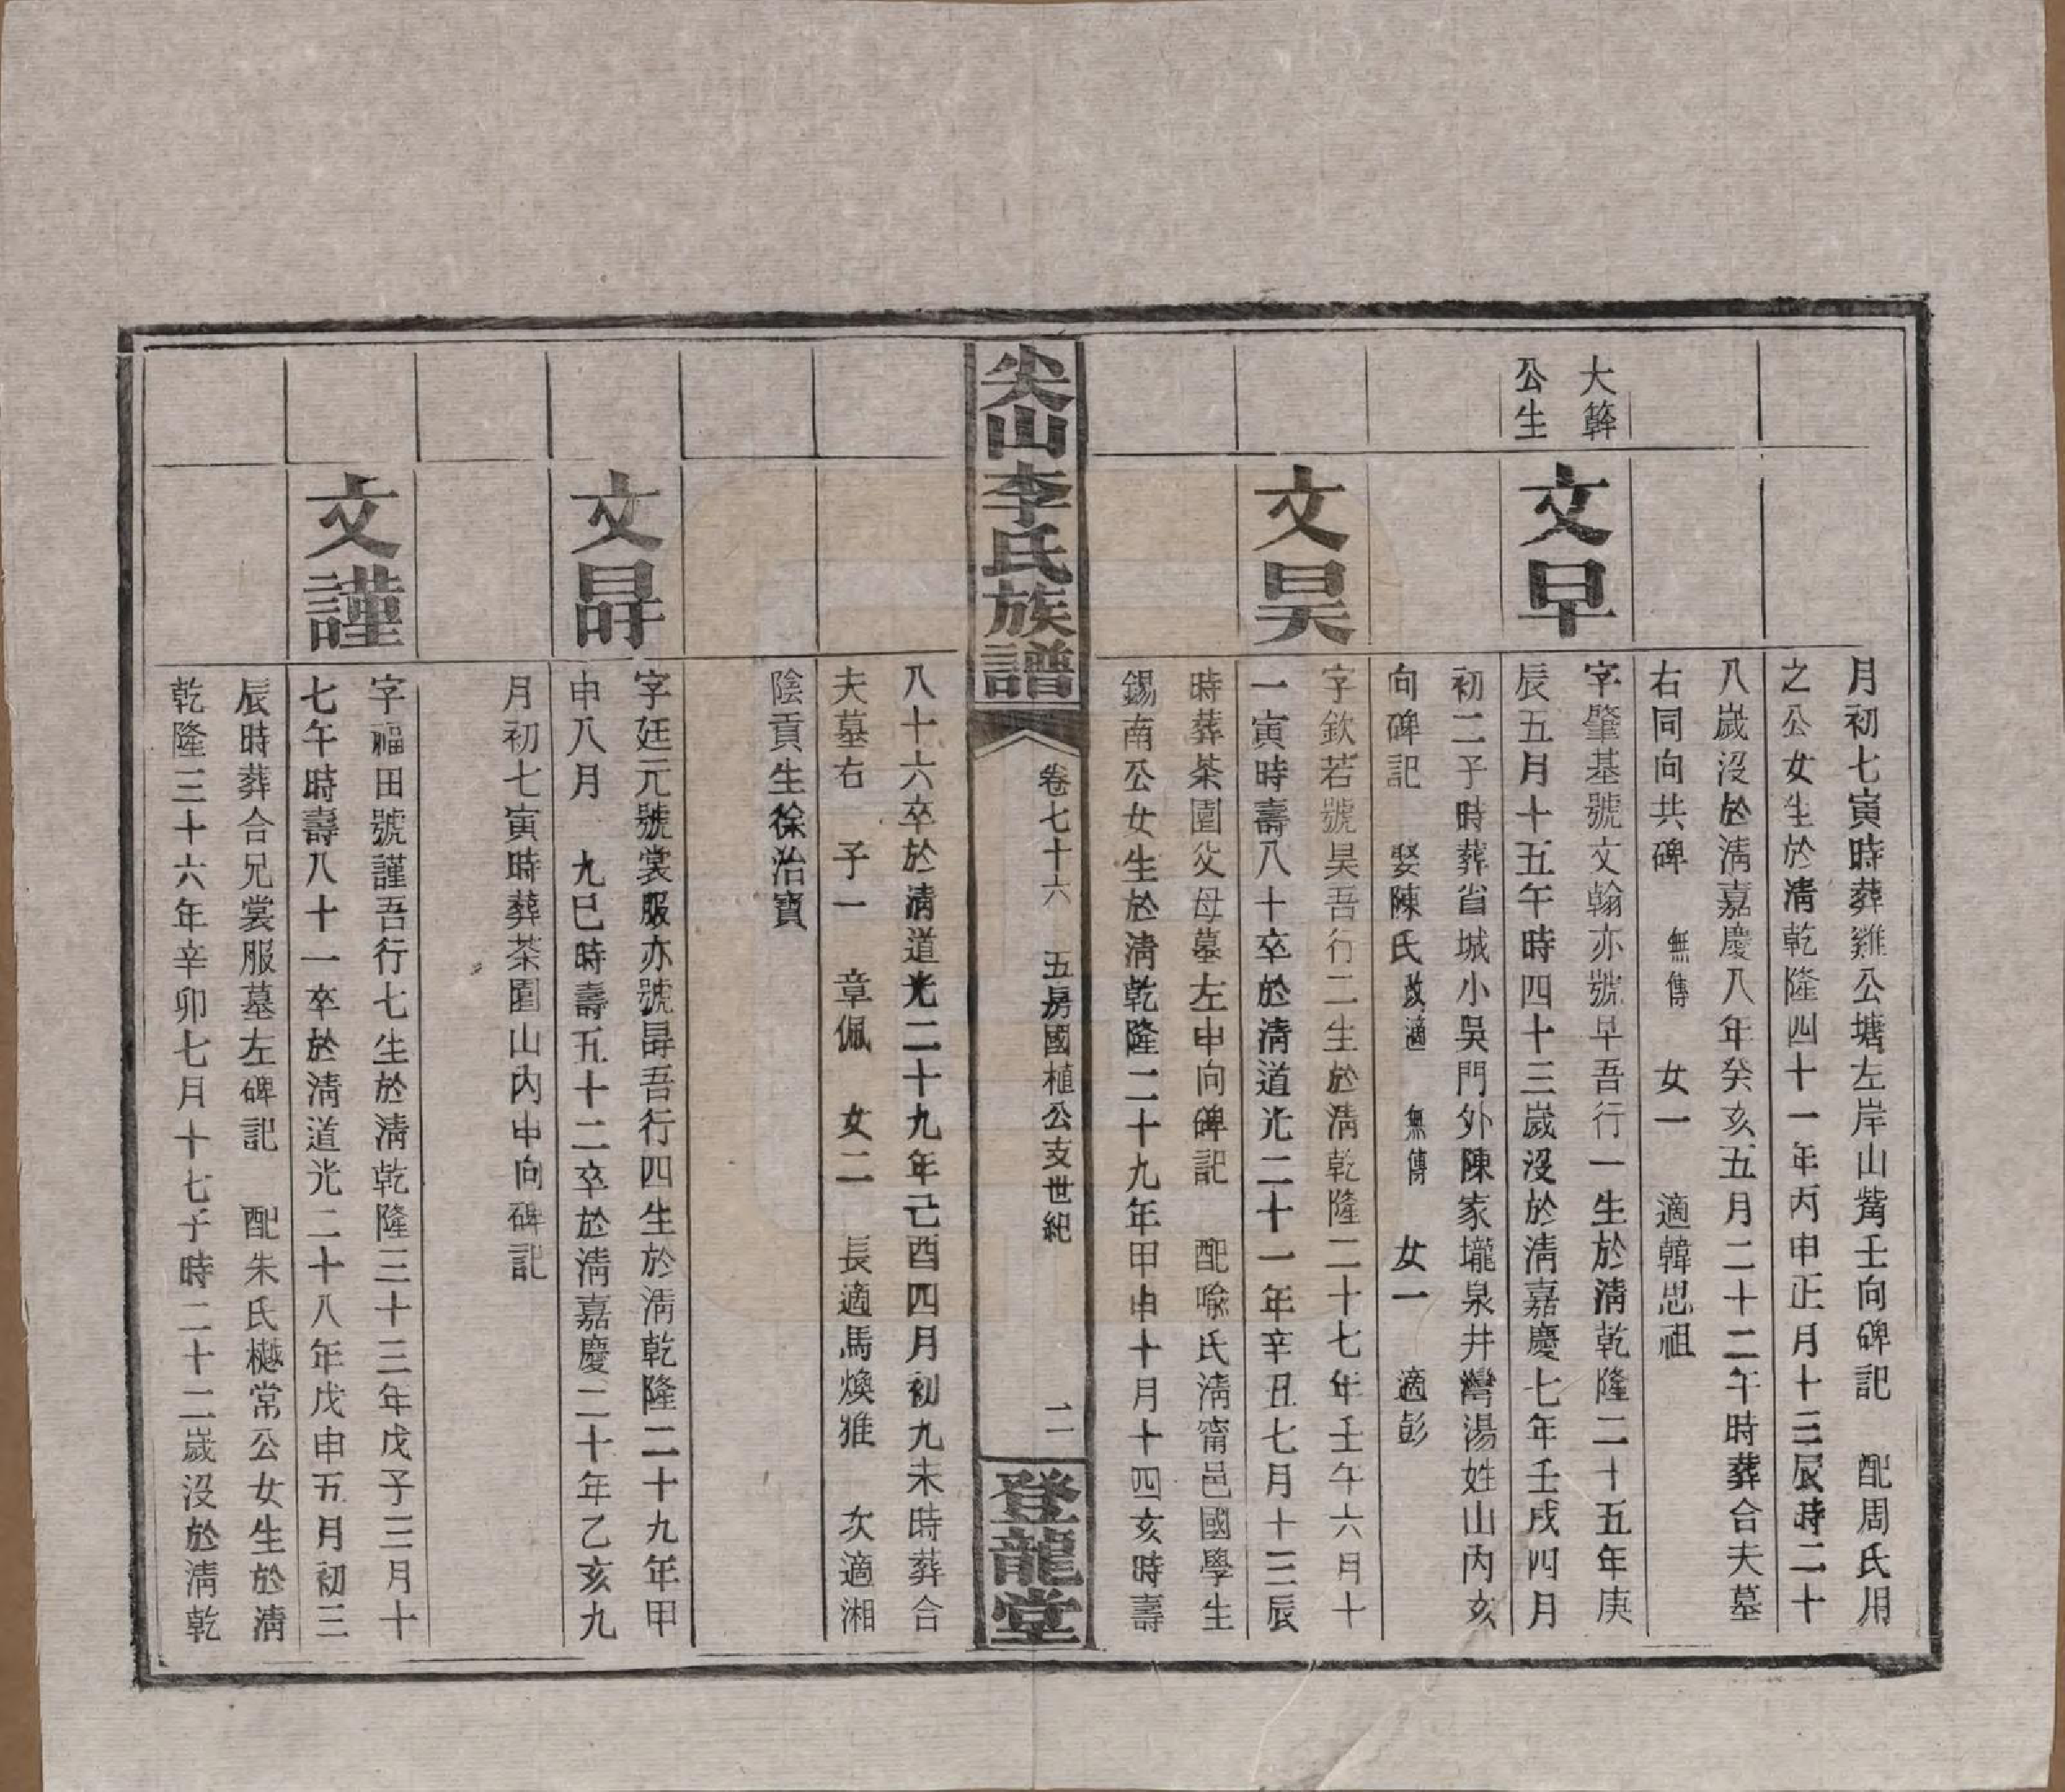 月初七寅時葬雞公塘左岸山觜壬向碑記　配周氏用
之公女生於清乾隆四十一年丙申正月十三辰時二十
八歲沒於清嘉慶八年癸亥五月二十二午時葬合夫墓
右同向共碑　無傳　女一　適韓思祖
大簳
公生
文早
字肇基號文翰亦號早吾行一生於清乾隆二十五年庚
辰五月十五午時四十三歲沒於清嘉慶七年壬戌四月
初二子時葬省城小吳門外陳家壠泉井灣湯姓山內亥
向碑記　娶陳氏改適　無傳　女一　適彭
文昊
字欽若號昊吾行二生於清乾隆二十七年壬午六月十
一寅時壽八十卒於清道光二十一年辛丑七月十三辰
時葬茶園父母墓左申向碑記　配喩氏清甯邑國學生
錫南公女生於清乾隆二十九年甲申十月十四亥時壽
尖山李氏族譜
卷七十六　五房國植公支世紀
二
登龍堂
八十六卒於清道光二十九年己酉四月初九未時葬合
夫墓右　子一　章佩　女二　長適馬煥雅　次適湘
陰貢生徐治寶
文昪
字廷元號裳服亦號昪吾行四生於清乾隆二十九年甲
申八月　九巳時壽五十二卒於清嘉慶二十年乙亥九
月初七寅時葬茶園山內申向碑記
文謹
字福田號謹吾行七生於清乾隆三十三年戊子三月十
七午時壽八十一卒於清道光二十八年戊申五月初三
辰時葬合兄裳服墓左碑記　配朱氏樾常公女生於清
乾隆三十六年辛卯七月十七子時二十二歲沒於清乾